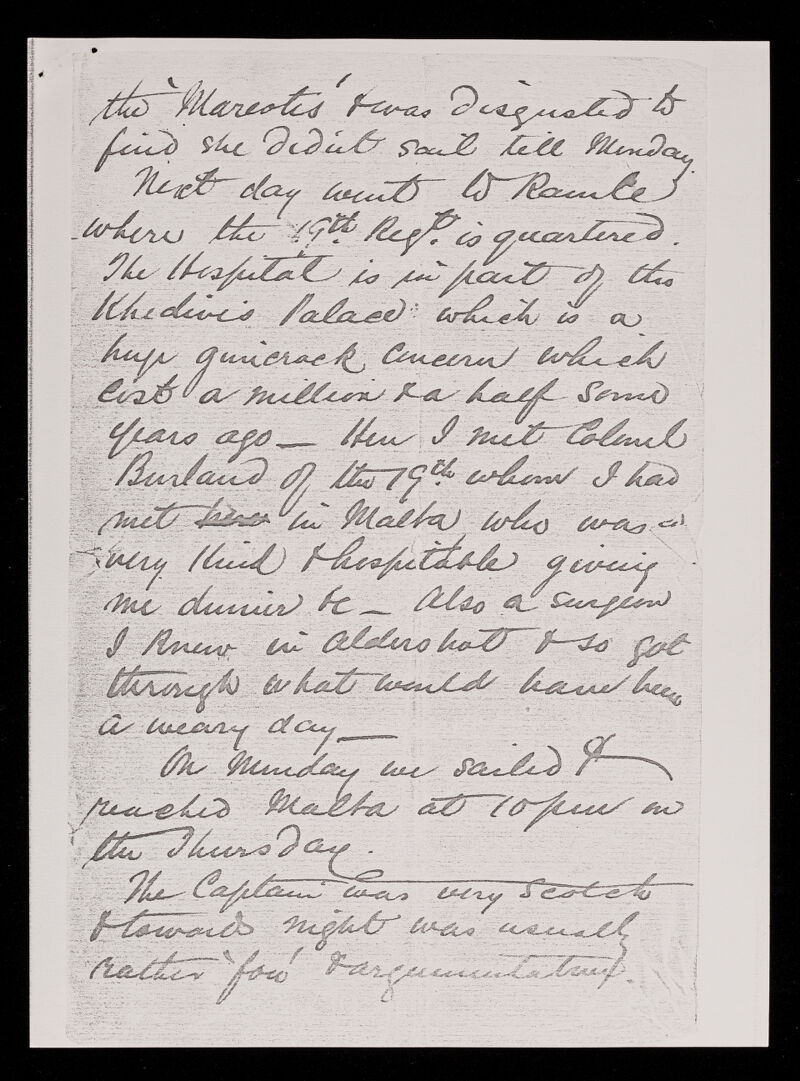 the 'Mareotis' & was disgusted to
find she didn't sail till Monday.
Next day went to Ramle
where the 19th. Regt. is quartered.
The Hospital is in part of the
Khedive's Palace which is a
huge gimcrack concern which
cost a million & a half some
years ago — Here I met Colonel
Burland of the 19th. whom I had
met in Malta who was a
very kind & hospitable giving
me dinner &c — Also a surgeon
I knew in Aldershott & so got
through what would have been
a weary day —
On Monday we sailed &
reached Malta at 10 pm on
the Thursday.
The Captain was very Scotch
& towards night was usually
rather 'fou' & argumentative.